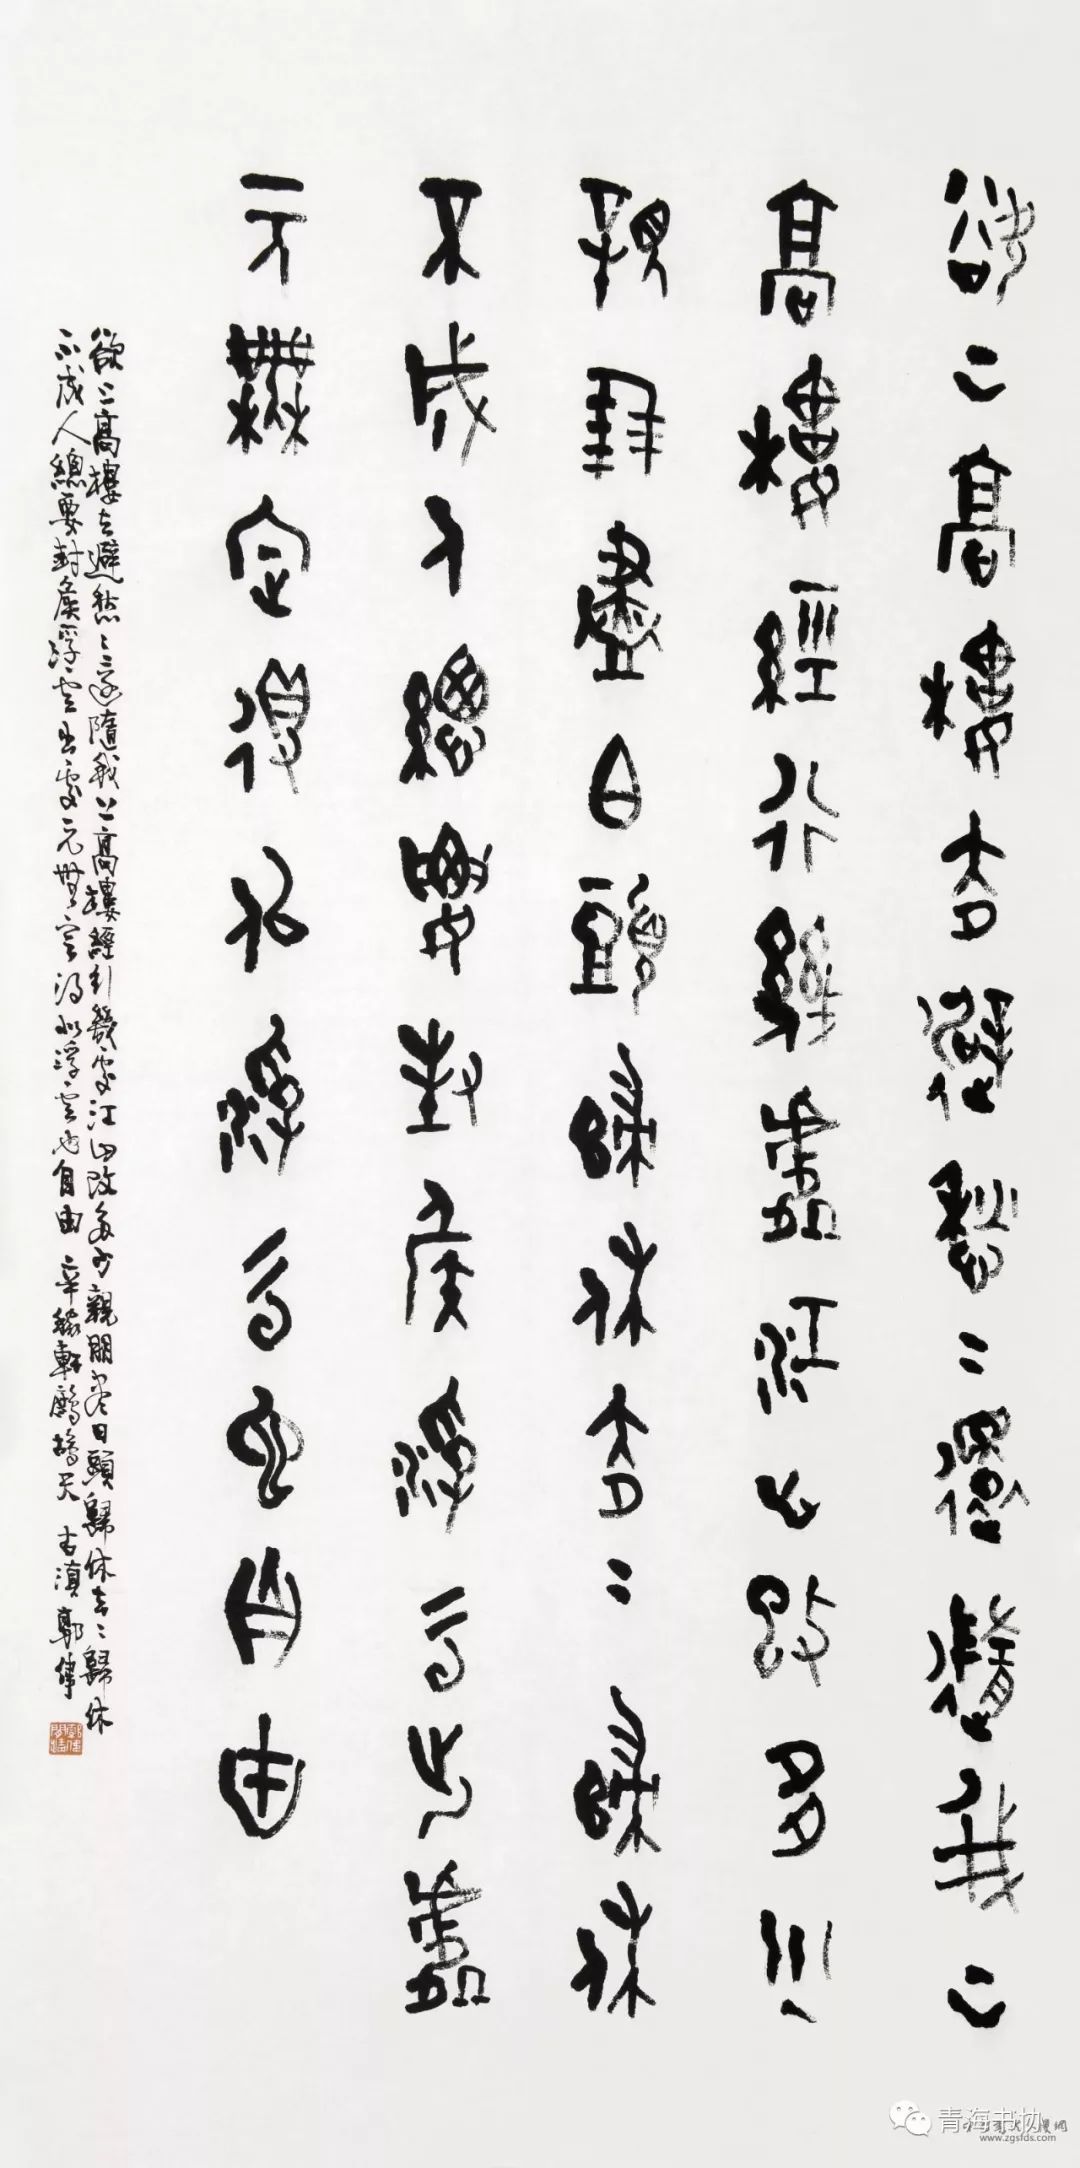 欲上高樓去避愁〻還隨我上
高樓經行幾處江山改多少
親朋盡白頭歸休去〻歸休
不成人總要封侯浮云出處
元無定得似浮云也自由
欲上高樓去避愁〻還隨我上高樓經行幾處江山改多少親朋盡白頭歸休去〻歸休
不成人總要封侯浮云出處元無定得似浮云也自由 辛稼軒鷓鴣天 古滇郭偉
青海书协
www.zgsfds.com